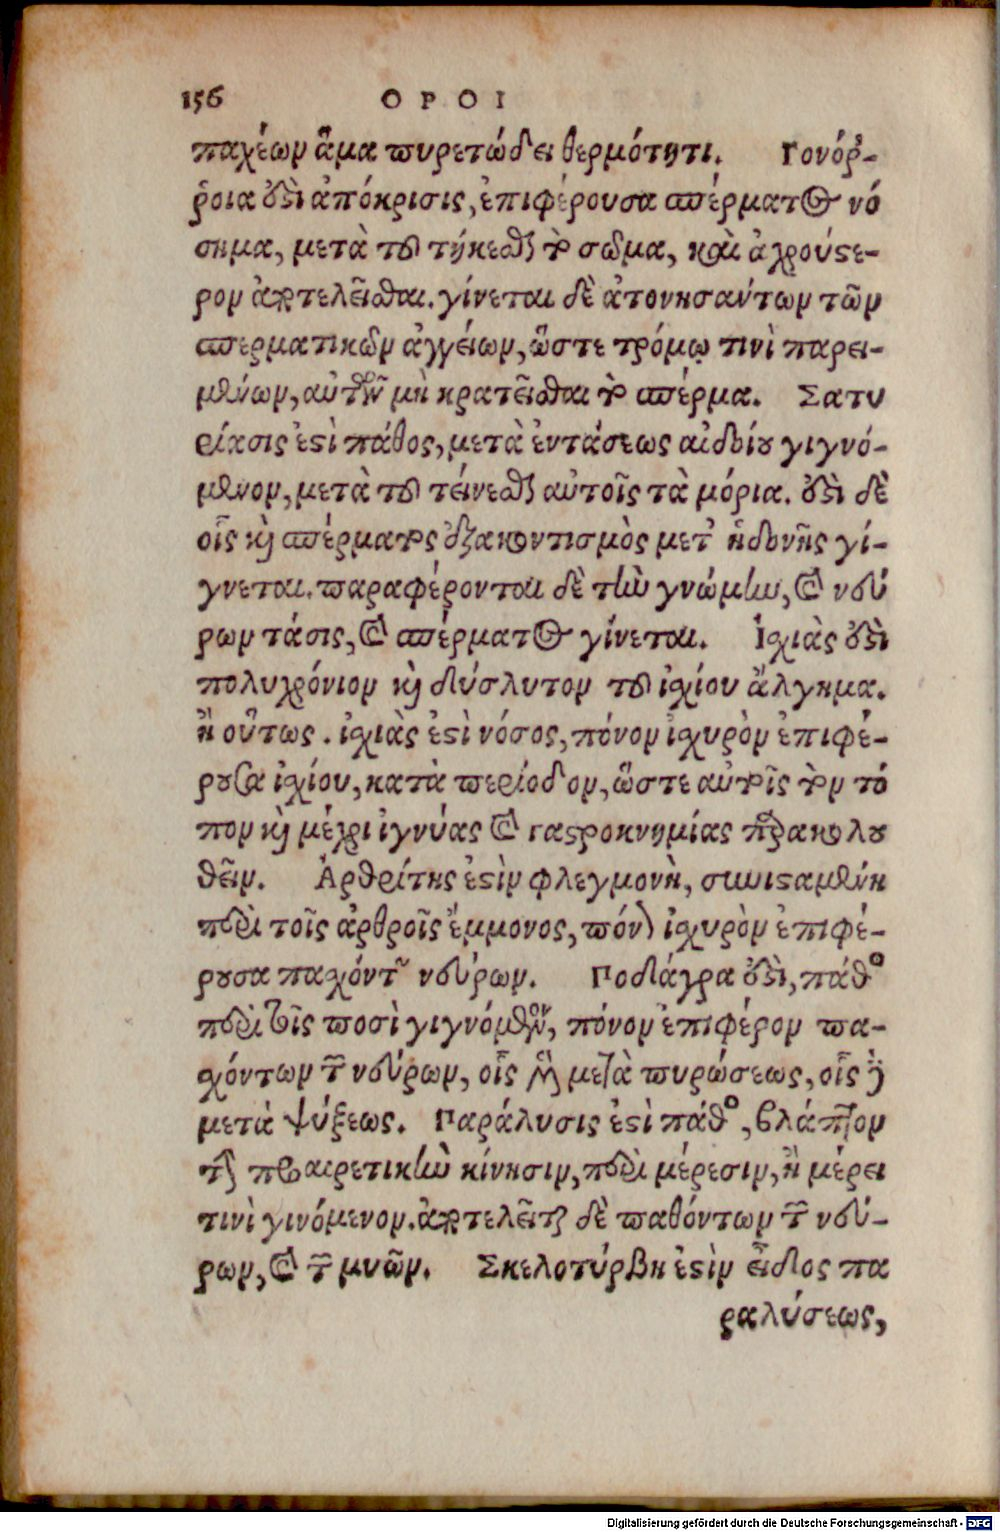 156 ΟΡΟΙ
παχέων ἅμα πυρετώδει θερμότητι. Γονόῤ-
ῥοια ὅδὶ ἀπόκρισις, ἐπιφέρουσα σπέρματος νό
σημα, μετὰ τοῦ τήκεσθαι τὸ σῶμα, καὶ ἀχρούστε-
ρον ἀποτελεῖσθαι. γίνεται δὲ ἀτονησάντων τῶν
σπερματικῶν ἀγγείων, ὥστε τρόμῳ τινὶ παρει-
μένων, αὐτῶν μὴ κρατεῖσθαι τὸ σπέρμα. Σατυ
ρίασις ἐστὶ πάθος, μετὰ ἐντάσεως αἰδοίου γιγνό-
μενον, μετὰ τοῦ τείνεσθαι αὐτοῖς τὰ μόρια. ἔστι δὲ
οἷς καὶ σπέρματος ἐξακοντισμὸς μετ᾽ ἡδονῆς γί-
γνεται. παραφέρονται δὲ τὴν γνώμην, καὶ νεύ
ρων τάσις, καὶ σπέρματος γίνεται. Ἰσχιὰς ἐστὶ
πολυχρόνιον καὶ δύσλυτον τοῦ ἰσχίου ἄλγημα.
ἢ οὕτως. ἰσχιὰς ἐστὶ νόσος, πόνον ἰσχυρὸν ἐπιφέ-
ρουσα ἰσχίου, κατὰ περίοδον, ὥστε αὐτοῖς τὸν τό
πον καὶ μέχρι ἰγνύας καὶ γαστροκνημίας παρακολου
θεῖν. Ἀρθρίτης ἐστὶν φλεγμονὴ, συνισταμένη
περὶ τοῖς ἀρθροῖς ἔμμονος, πόνον ἰσχυρὸν ἐπιφέ-
ρουσα παχόντων νεύρων. Ποδάγρα ἐστὶ, πάθος
περὶ τοῖς ποσὶ γιγνόμενον, πόνον ἐπιφέρον πα-
χόντων τῶν νεύρων, οἷς μὲν μετὰ πυρώσεως, οἷς δὲ
μετὰ ψύξεως. Παράλυσις ἐστὶ πάθος, βλάπτον
τὴν προαιρετικὴν κίνησιν, περὶ μέρεσιν, ἢ μέρει
τινὶ γινόμενον. ἀποτελεῖται δὲ παθόντων τῶν νεύ-
ρων, καὶ τῶν μυῶν. Σκελοτύρβη ἐστὶν εἶδος πα
ραλύσεως,
Digitalisierung gefördert durch die Deutsche Forschungsgemeinschaft - DFG